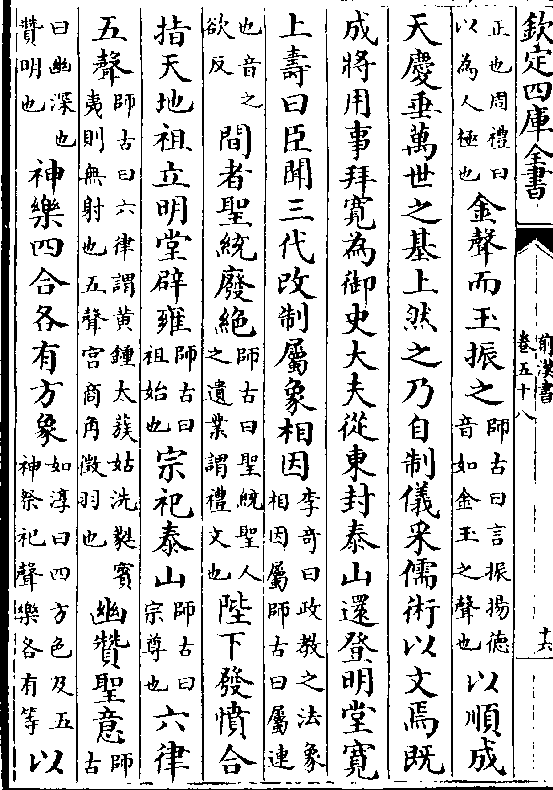 欽定四庫全書
前漢書
卷五十八
十六
正也周禮曰以為人極也金聲而玉振之師古曰言振揚德音如金玉之聲也以順成
天慶垂萬世之基上然之乃自制儀采儒術以文焉既
成將用事拜寬為御史大夫從東封泰山還登明堂寬
上壽曰臣聞三代改制屬象相因李奇曰政教之法象相因屬師古曰屬連
也音之欲反間者聖統廢絶師古曰聖統聖人之遺業謂禮文也陛下發憤合
指天地祖立明堂辟雍師古曰祖始也宗祀泰山師古曰宗尊也六律
五聲師古曰六律謂黄鍾太蔟姑洗蕤賓夷則無射也五聲宫商角徵羽也幽贊聖意師古
曰幽深也贊明也神樂四合各有方象如淳曰四方色及五神祭祀聲樂各有等以